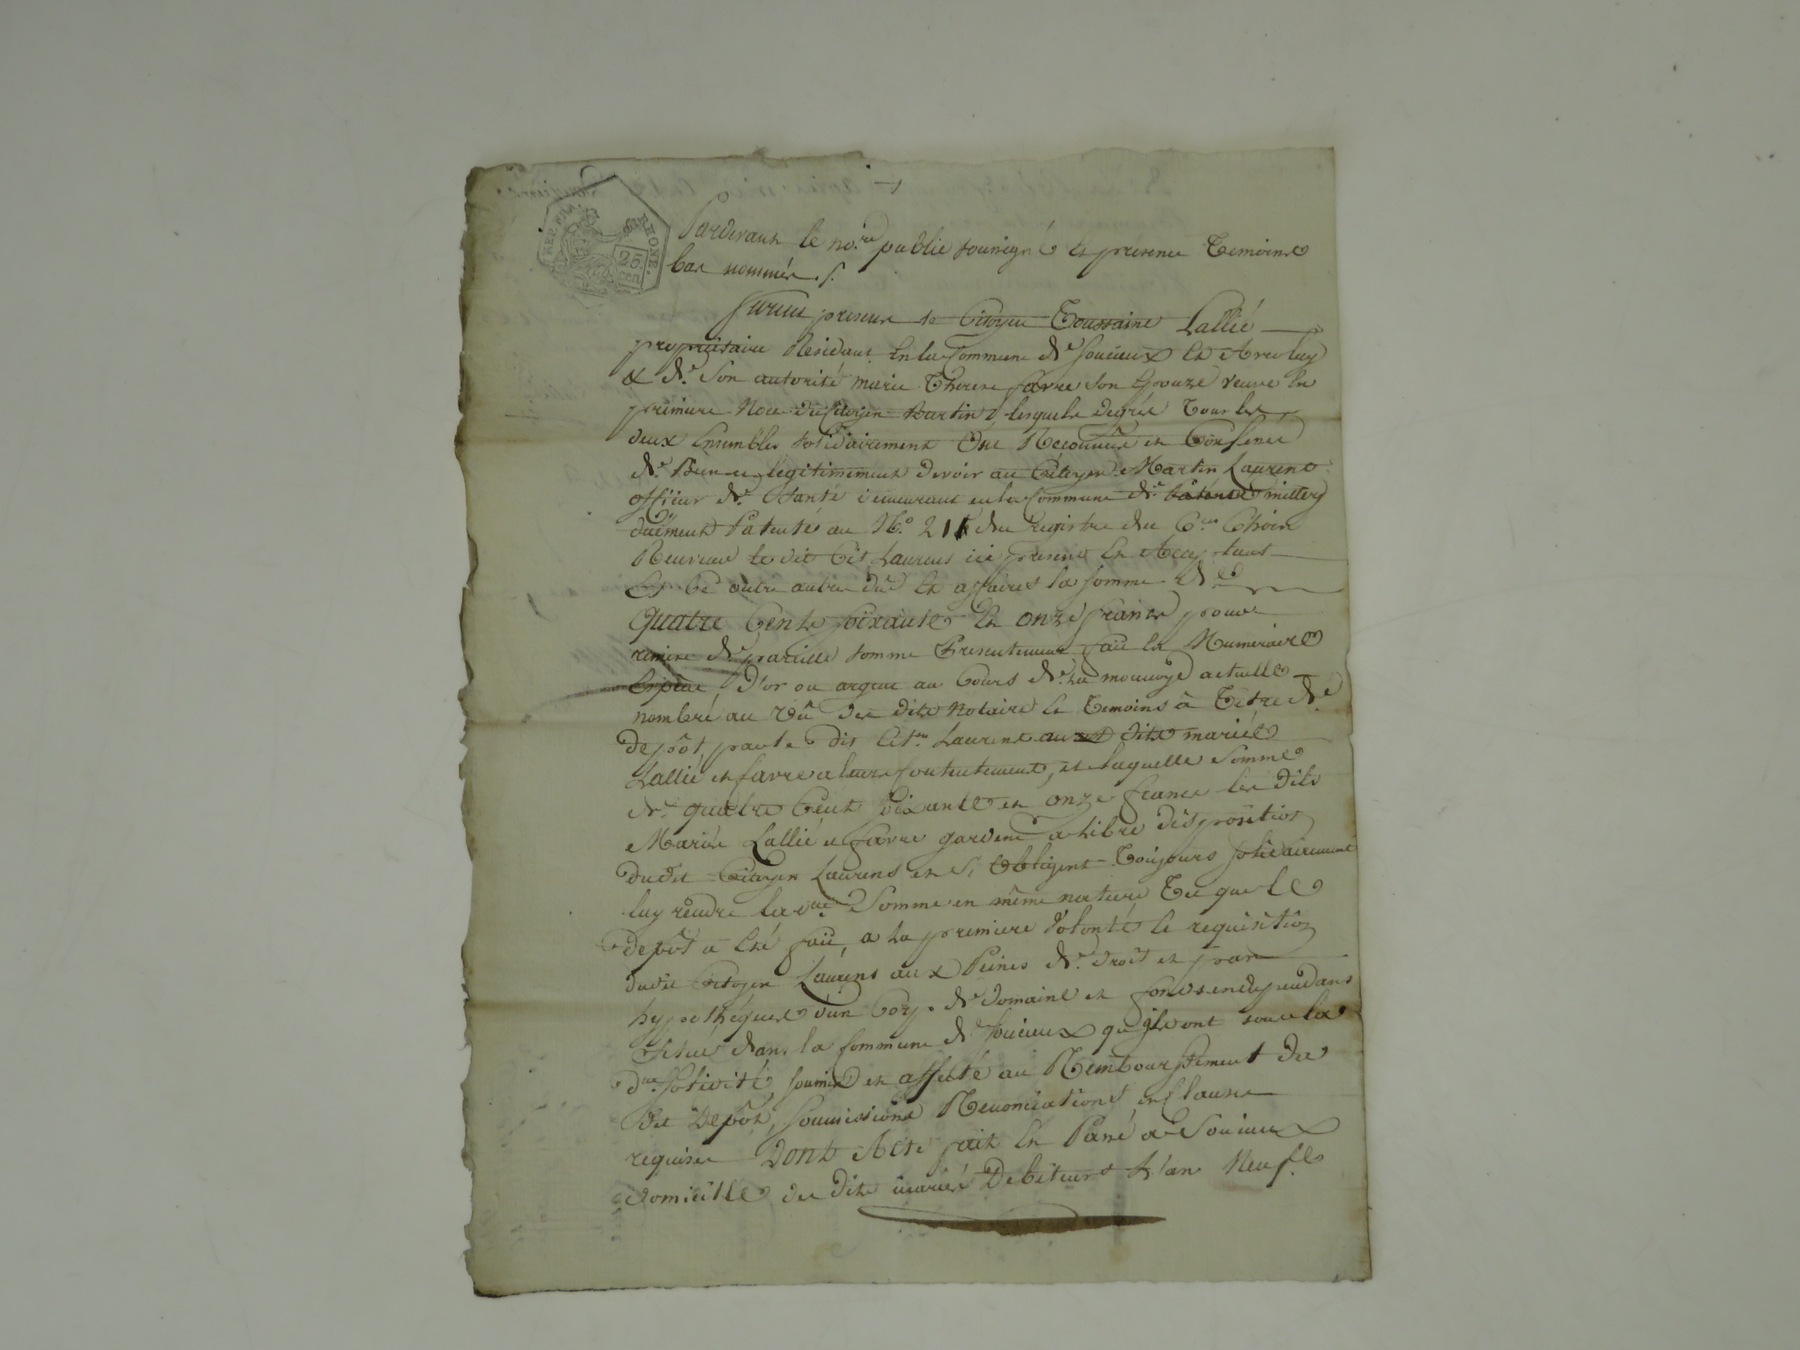 REP. FRA.
RHONE.
25
cen
Pardevant le no.re public soussigné et presence Temoins
bas nommés /.
Furent presens le Citoyen Toussaint Lallié
propriétaire Residant en la Commune de Soucieux Et
& de Son autorité marie Therese favre son Epouze veuve En
premiere Noce du Citoyen Martin, lesquels degrés Tous les
deux Ensembles solidairement Ont Reconnu et Confessé
de Bien et légitimement devoir au Citoyen Martin Laurens
officier de Santé demeurant en la Commune de millery
duëment Patenté au N.o 211 du registre du
le dit Cit. Laurens ici present Et Acceptant
Et Ce outre autre du Et affaires la somme De
quatre Cents soixante Et onze francs pour
de pareille somme Presentement fait En Numeraire
Espece d'or ou argent au Cours de la monnoye actuelle
nombré au Vû des dits Notaire Et Temoins à Titre De
depôt par le dit Cit.en Laurens aux dits mariés
Lallié et favre a leur Contentement, et laquelle Somme
de quatre Cent soixante et onze francs les dits
Mariés Lallié et favre garderont a libre disposition
dudit Citoyen Laurens et S'Obligent Toujours solidairement
luy rendre la d.te Somme en même nature Tel que le
depôt a Eté fait, a la premiere Volonté Et requisition
dudit Citoyen Laurens aux Peines de droit et par
hypotheque d'un Corp. de domaine et fonds en dependans
Situé dans la Commune de Soucieux qu'ils ont sous la
d.te solidité, soumis et affecté au Remboursement du
dit Depôt, soumissions Renonciations et Clause
requises Dont Acte fait Et Passé a Soucieux
domicille des dits mariés Debiteurs L'an Neuf.e